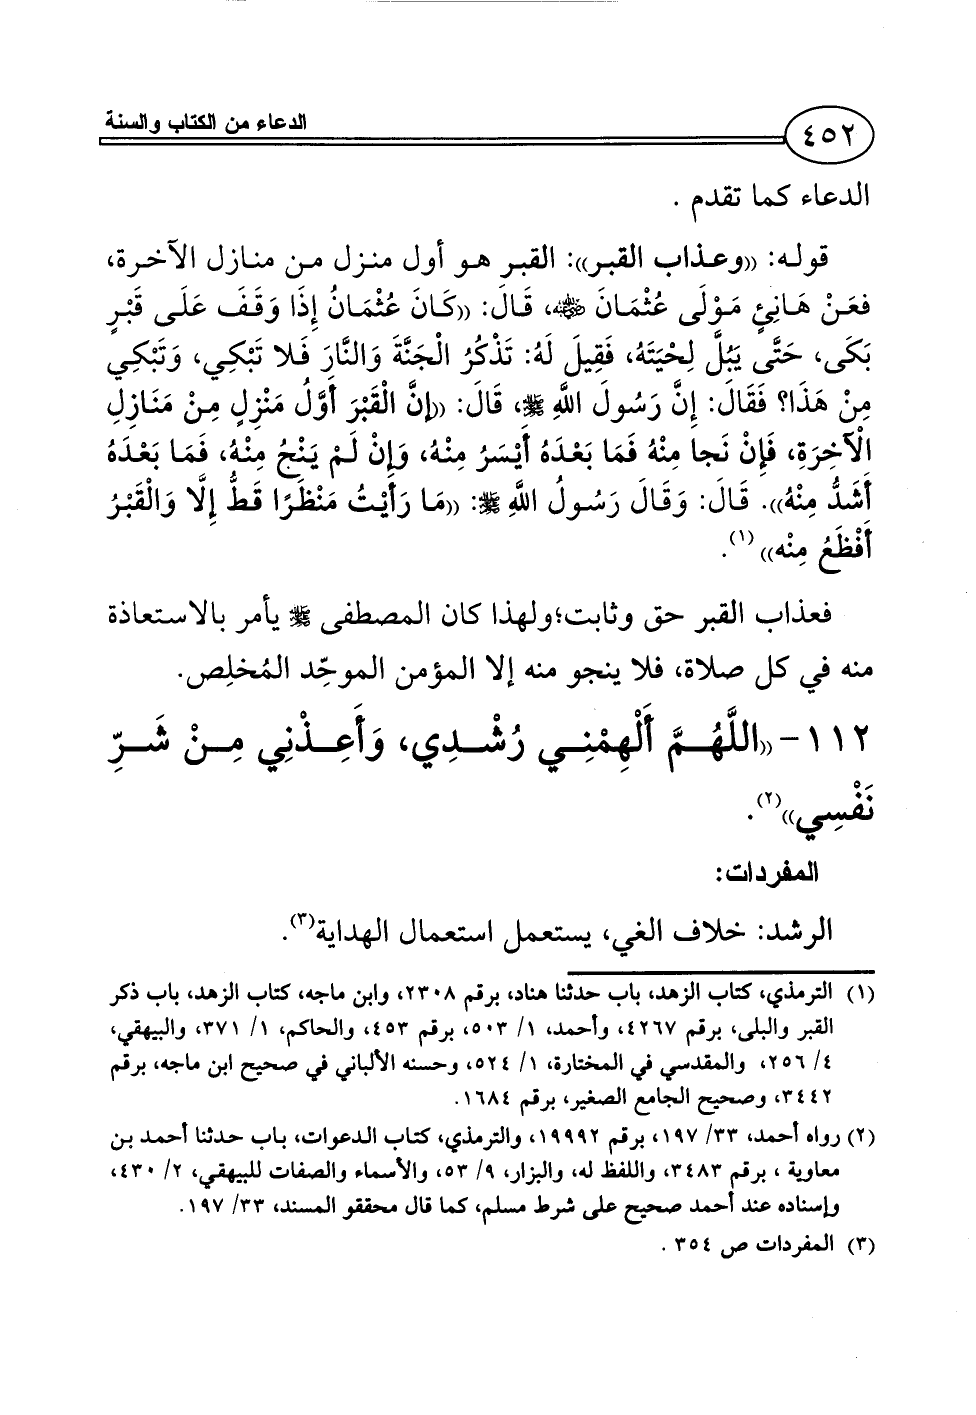 ٤٥٢
الدعاء من الكتاب والسنة
الدعاء كما تقدم .
قوله: ((وعذاب القبر)): القبر هو أول منزل من منازل الآخرة،
فعَنْ هَانِئٍ مَوْلَى عُثْمَانَ ﷺ، قَالَ: ((كَانَ عُثْمَانُ إِذَا وَقَفَ عَلَى قَبْرٍ
بَكَى، حَتَّى يَبُلَّ لِحْيَتَهُ، فَقِيلَ لَهُ: تَذْكُرُ الْجَنَّةَ وَالنَّارَ فَلا تَبْكِي، وَتَبْكِي
مِنْ هَذَا؟ فَقَالَ: إِنَّ رَسُولَ اللهِ ﷺ، قَالَ: ((إِنَّ الْقَبْرَ أَوَّلُ مَنْزِلٍ مِنْ مَنَازِلِ
الْآخِرَةِ، فَإِنْ نَجا مِنْهُ فَمَا بَعْدَهُ أَيْسَرُ مِنْهُ، وَإِنْ لَمْ يَنْجُ مِنْهُ، فَمَا بَعْدَهُ
أَشَدُّ مِنْهُ)). قَالَ: وَقَالَ رَسُولُ اللَّهِ ﷺ: ((مَا رَأَيْتُ مَنْظَرًا قَطُّ إِلَّا وَالْقَبْرُ
أَفْظَعُ مِنْه)) (١).
فعذاب القبر حق وثابت؛ولهذا كان المصطفى ﷺ يأمر بالاستعاذة
منه في كل صلاة، فلا ينجو منه إلا المؤمن الموحِّد المُخلِص.
١١٢- ((اللَّهُمَّ أَلْهِمْنِي رُشْدِي، وَأَعِذْنِي مِنْ شَرِّ
نَفْسِي))(٢).
المفردات:
الرشد: خلاف الغي، يستعمل استعمال الهداية(٣).
(١) الترمذي، كتاب الزهد، باب حدثنا هناد، برقم ٢٣٠٨، وابن ماجه، كتاب الزهد، باب ذكر
القبر والبلى، برقم ٤٢٦٧، وأحمد، ١/ ٥٠٣، برقم ٤٥٣، والحاكم، ١/ ٣٧١، والبيهقي،
٤/ ٢٥٦، والمقدسي في المختارة، ١/ ٥٢٤، وحسنه الألباني في صحيح ابن ماجه، برقم
٣٤٤٢، وصحيح الجامع الصغير، برقم ١٦٨٤.
(٢) رواه أحمد، ٣٣/ ١٩٧، برقم ١٩٩٩٢، والترمذي، كتاب الدعوات، باب حدثنا أحمد بن
معاوية ، برقم ٣٤٨٣، واللفظ له، والبزار، ٩/ ٥٣، والأسماء والصفات للبيهقي، ٢/ ٤٣٠،
وإسناده عند أحمد صحيح على شرط مسلم، كما قال محققو المسند، ٣٣/ ١٩٧.
(٣) المفردات ص ٣٥٤ .